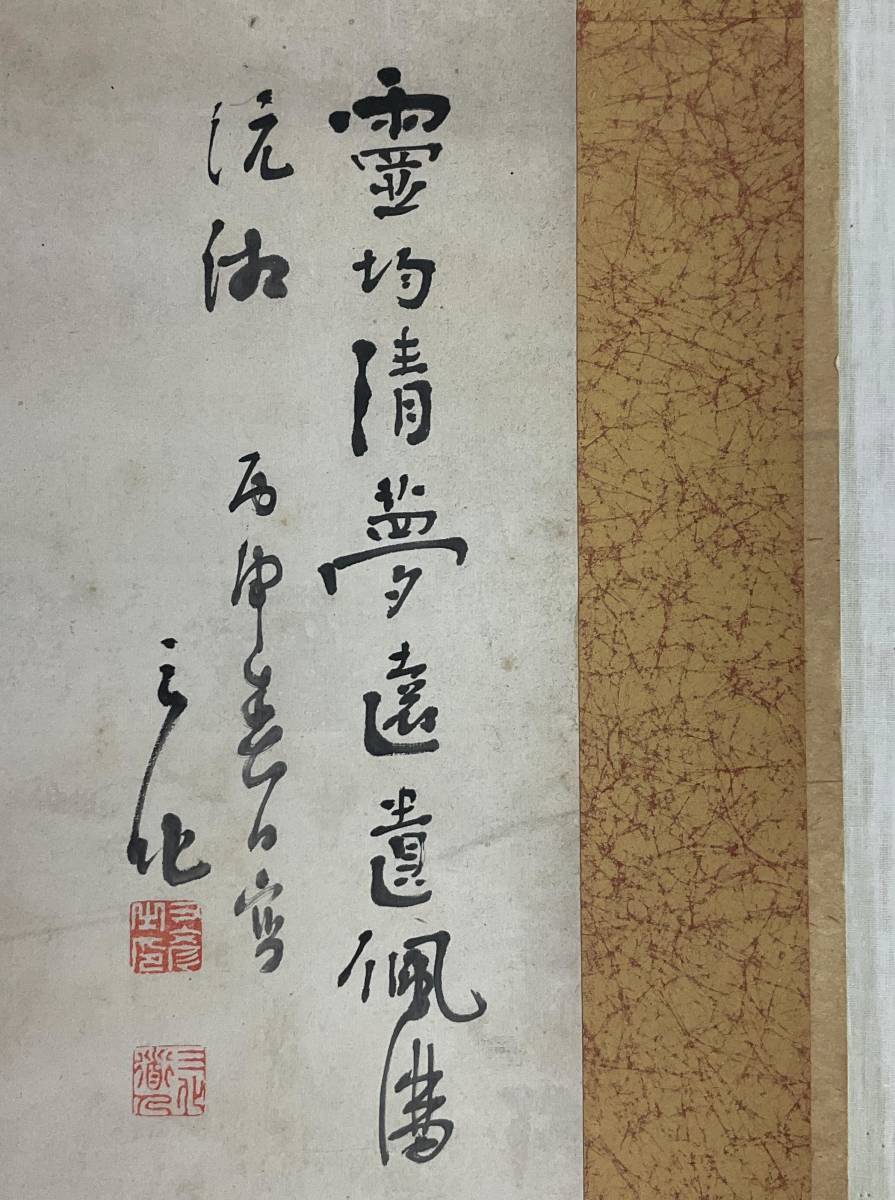 靈均清夢遠遺佩滿
沅湘
丙申春日寫
三化
三化
道人